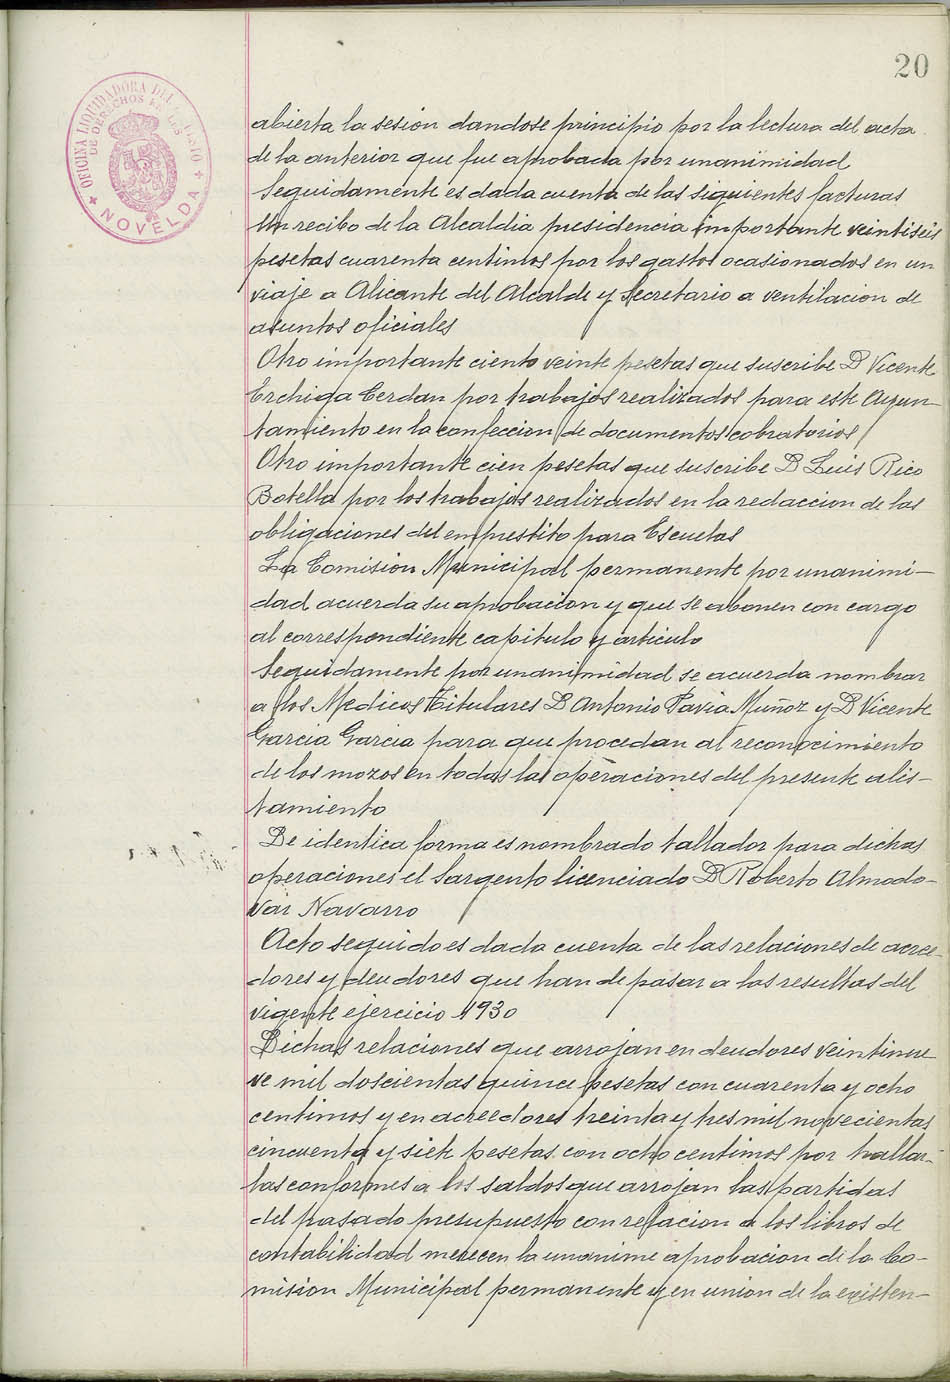 20
OFICINA LIQUIDADORA DEL
DE DERECHOS
NOVELDA
abierta la sesion dandose principio por la lectura del acta
de la anterior que fue aprobada por unanimidad
Seguidamente es dada cuenta de las siguientes facturas
Un recibo de la Alcaldia presidencia importante veintiseis
pesetas cuarenta centimos por los gastos ocasionados en un
viaje a Alicante del Alcalde y Secretario a ventilacion de
asuntos oficiales
Otro importante ciento veinte pesetas que suscribe D Vicente
Erchiga Cerdan por trabajos realizados para este Ayun-
tamiento en la confeccion de documentos cobratorios
Otro importante cien pesetas que suscribe D Luis Rico
Botella por los trabajos realizados en la redaccion de las
obligaciones del emprestito para Escuelas
La Comision Municipal permanente por unanimi-
dad acuerda su aprobacion y que se abonen con cargo
al correspondiente capitulo y articulo
Seguidamente por unanimidad se acuerda nombrar
a los Medicos Titulares D Antonio Pavia Muñoz y D Vicente
Garcia Garcia para que procedan al reconocimiento
de los mozos en todas las operaciones del presente alis-
tamiento
De identica forma es nombrado tallador para dichas
operaciones el Sargento licenciado D Roberto Almodo-
var Navarro
Acto seguido es dada cuenta de las relaciones de acree-
dores y deudores que han de pasar a las resultas del
vigente ejercicio 1930
Dichas relaciones que arrojan en deudores veintinue-
ve mil doscientas quince pesetas con cuarenta y ocho
centimos y en acreedores treinta y tres mil novecientas
cincuenta y siete pesetas con ocho centimos por hallar-
las conformes a los saldos que arrojan las partidas
del pasado presupuesto con relacion a los libros de
contabilidad merecen la unanime aprobacion de la Co-
mision Municipal permanente y en union de la existen-